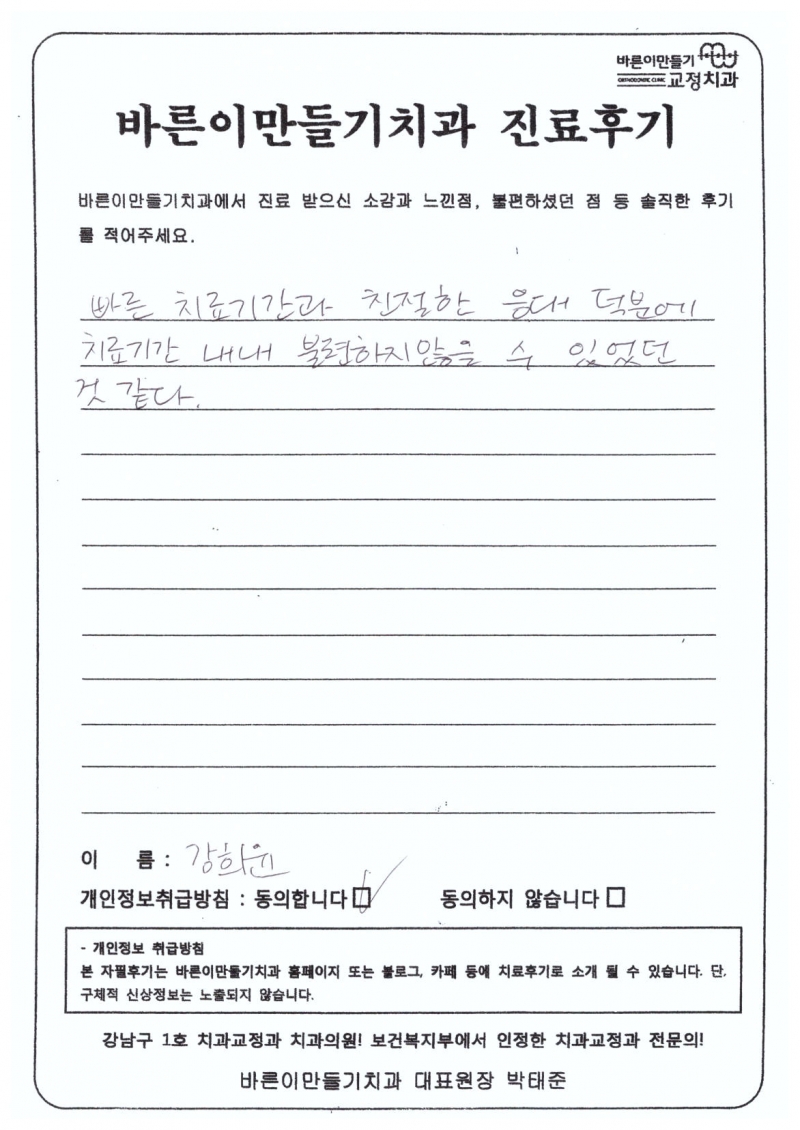 바른이만들기
ORTHODONTIC CLINIC 교정치과
바른이만들기치과 진료후기
바른이만들기치과에서 진료 받으신 소감과 느낀점, 불편하셨던 점 등 솔직한 후기
를 적어주세요.
빠른 치료기간과 친절한 응대 덕분에
치료기간 내내 불편하지않을 수 있었던
것 같다.
이 름 : 강희윤
개인정보취급방침 : 동의합니다 ☑ 동의하지 않습니다 □
- 개인정보 취급방침
본 자필후기는 바른이만들기치과 홈페이지 또는 블로그, 카페 등에 치료후기로 소개 될 수 있습니다. 단,
구체적 신상정보는 노출되지 않습니다.
강남구 1호 치과교정과 치과의원! 보건복지부에서 인정한 치과교정과 전문의!
바른이만들기치과 대표원장 박태준